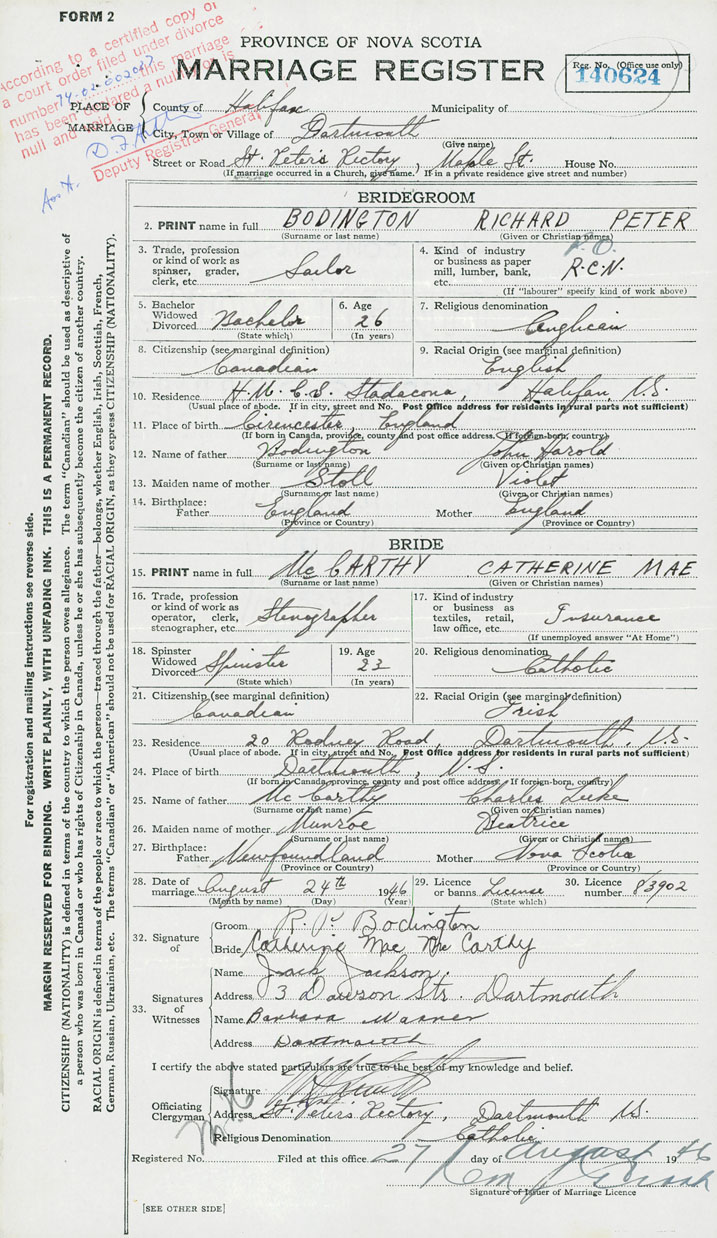 FORM 2
According to a certified copy of
a court order filed under divorce
number 74-02-002047 this marriage
has been declared a nullity or is
null and void.
Deputy Registrar General
PROVINCE OF NOVA SCOTIA
MARRIAGE REGISTER
Reg. No. (Office use only)
140624
PLACE OF MARRIAGE
County of Halifax Municipality of
City, Town or Village of Dartmouth
(Give name)
Street or Road St. Peter's Rectory, Maple St. House No.
(If marriage occurred in a Church, give name. If in a private residence give street and number)
BRIDEGROOM
2. PRINT name in full BODINGTON RICHARD PETER
(Surname or last name) (Given or Christian names)
3. Trade, profession or kind of work as spinner, grader, clerk, etc. Sailor
4. Kind of industry or business as paper mill, lumber, bank, etc. R.C.N.
(If "labourer" specify kind of work above)
5. Bachelor Widowed Divorced Bachelor
(State which)
6. Age 26
(In years)
7. Religious denomination Anglican
8. Citizenship (see marginal definition) Canadian
9. Racial Origin (see marginal definition) English
10. Residence H.M.C.S. Stadacona, Halifax, N.S.
(Usual place of abode. If in city, street and No. Post Office address for residents in rural parts not sufficient)
11. Place of birth Cirencester, England
(If born in Canada, province, county and post office address. If foreign-born, country)
12. Name of father Bodington John Harold
(Surname or last name) (Given or Christian names)
13. Maiden name of mother Stoll Violet
(Surname or last name) (Given or Christian names)
14. Birthplace: Father England Mother England
(Province or Country) (Province or Country)
BRIDE
15. PRINT name in full Mc CARTHY CATHERINE MAE
(Surname or last name) (Given or Christian names)
16. Trade, profession or kind of work as operator, clerk, stenographer, etc. Stenographer
17. Kind of industry or business as textiles, retail, law office, etc. Insurance
(If unemployed answer "At Home")
18. Spinster Widowed Divorced Spinster
(State which)
19. Age 23
(In years)
20. Religious denomination Catholic
21. Citizenship (see marginal definition) Canadian
22. Racial Origin (see marginal definition) Irish
23. Residence 20 Rodney Road, Dartmouth, N.S.
(Usual place of abode. If in city, street and No. Post Office address for residents in rural parts not sufficient)
24. Place of birth Dartmouth, N.S.
(If born in Canada, province, county and post office address. If foreign-born, country)
25. Name of father Mc Carthy Charles Luke
(Surname or last name) (Given or Christian names)
26. Maiden name of mother Munroe Beatrice
(Surname or last name) (Given or Christian names)
27. Birthplace: Father Newfoundland Mother Nova Scotia
(Province or Country) (Province or Country)
28. Date of marriage August 24th 1946
(Month by name) (Day) (Year)
29. Licence or banns License
(State which)
30. Licence number 83902
32. Signature of
Groom R. P. Bodington
Bride Catherine Mae Mc Carthy
33. Signatures of Witnesses
Name Jack Jackson
Address 3 Dawson Str. Dartmouth
Name Barbara Warner
Address Dartmouth
I certify the above stated particulars are true to the best of my knowledge and belief.
Officiating Clergyman
Signature
Address St. Peter's Rectory, Dartmouth N.S.
Religious Denomination Catholic
Registered No. Filed at this office 27 day of August 1946
Signature of Issuer of Marriage Licence
[SEE OTHER SIDE]
For registration and mailing instructions see reverse side.
MARGIN RESERVED FOR BINDING. WRITE PLAINLY, WITH UNFADING INK. THIS IS A PERMANENT RECORD.
CITIZENSHIP (NATIONALITY) is defined in terms of the country to which the person owes allegiance. The term "Canadian" should be used as descriptive of
a person who was born in Canada or who has rights of Citizenship in Canada, unless he or she has subsequently become the citizen of another country.
RACIAL ORIGIN is defined in terms of the people or race to which the person—traced through the father—belongs, whether English, Irish, Scottish, French,
German, Russian, Ukrainian, etc. The terms "Canadian" or "American" should not be used for RACIAL ORIGIN, as they express CITIZENSHIP (NATIONALITY).